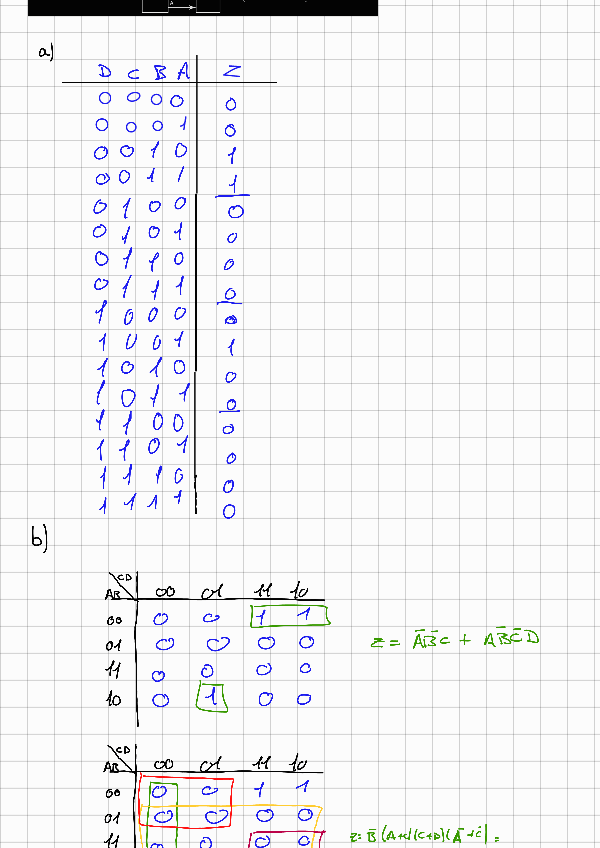 A
a)
D C B A Z
0 0 0 0 0
0 0 0 1 0
0 0 1 0 1
0 0 1 1 1
0 1 0 0 0
0 1 0 1 0
0 1 1 0 0
0 1 1 1 0
1 0 0 0 0
1 0 0 1 1
1 0 1 0 0
1 0 1 1 0
1 1 0 0 0
1 1 0 1 0
1 1 1 0 0
1 1 1 1 0
b)
CD
AB 00 01 11 10
00 0 0 1 1
01 0 0 0 0
11 0 0 0 0
10 0 1 0 0
Z = A̅B̅C + AB̅C̅D
CD
AB 00 01 11 10
00 0 0 1 1
01 0 0 0 0
11 0 0 0
Z = B̅(A+C)(C+D)(A̅+C̅) =